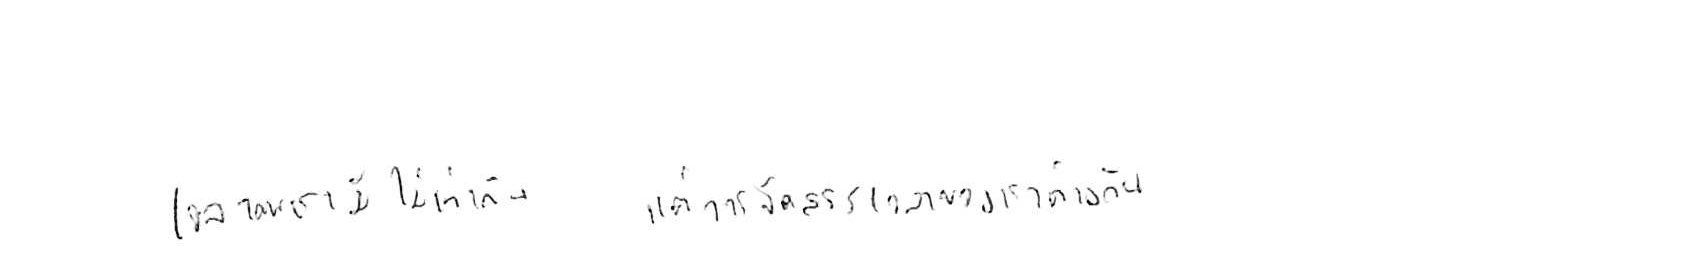 เวลาคนเรามีไม่เท่ากัน แต่การจัดสรรเวลาของเราต่างกัน